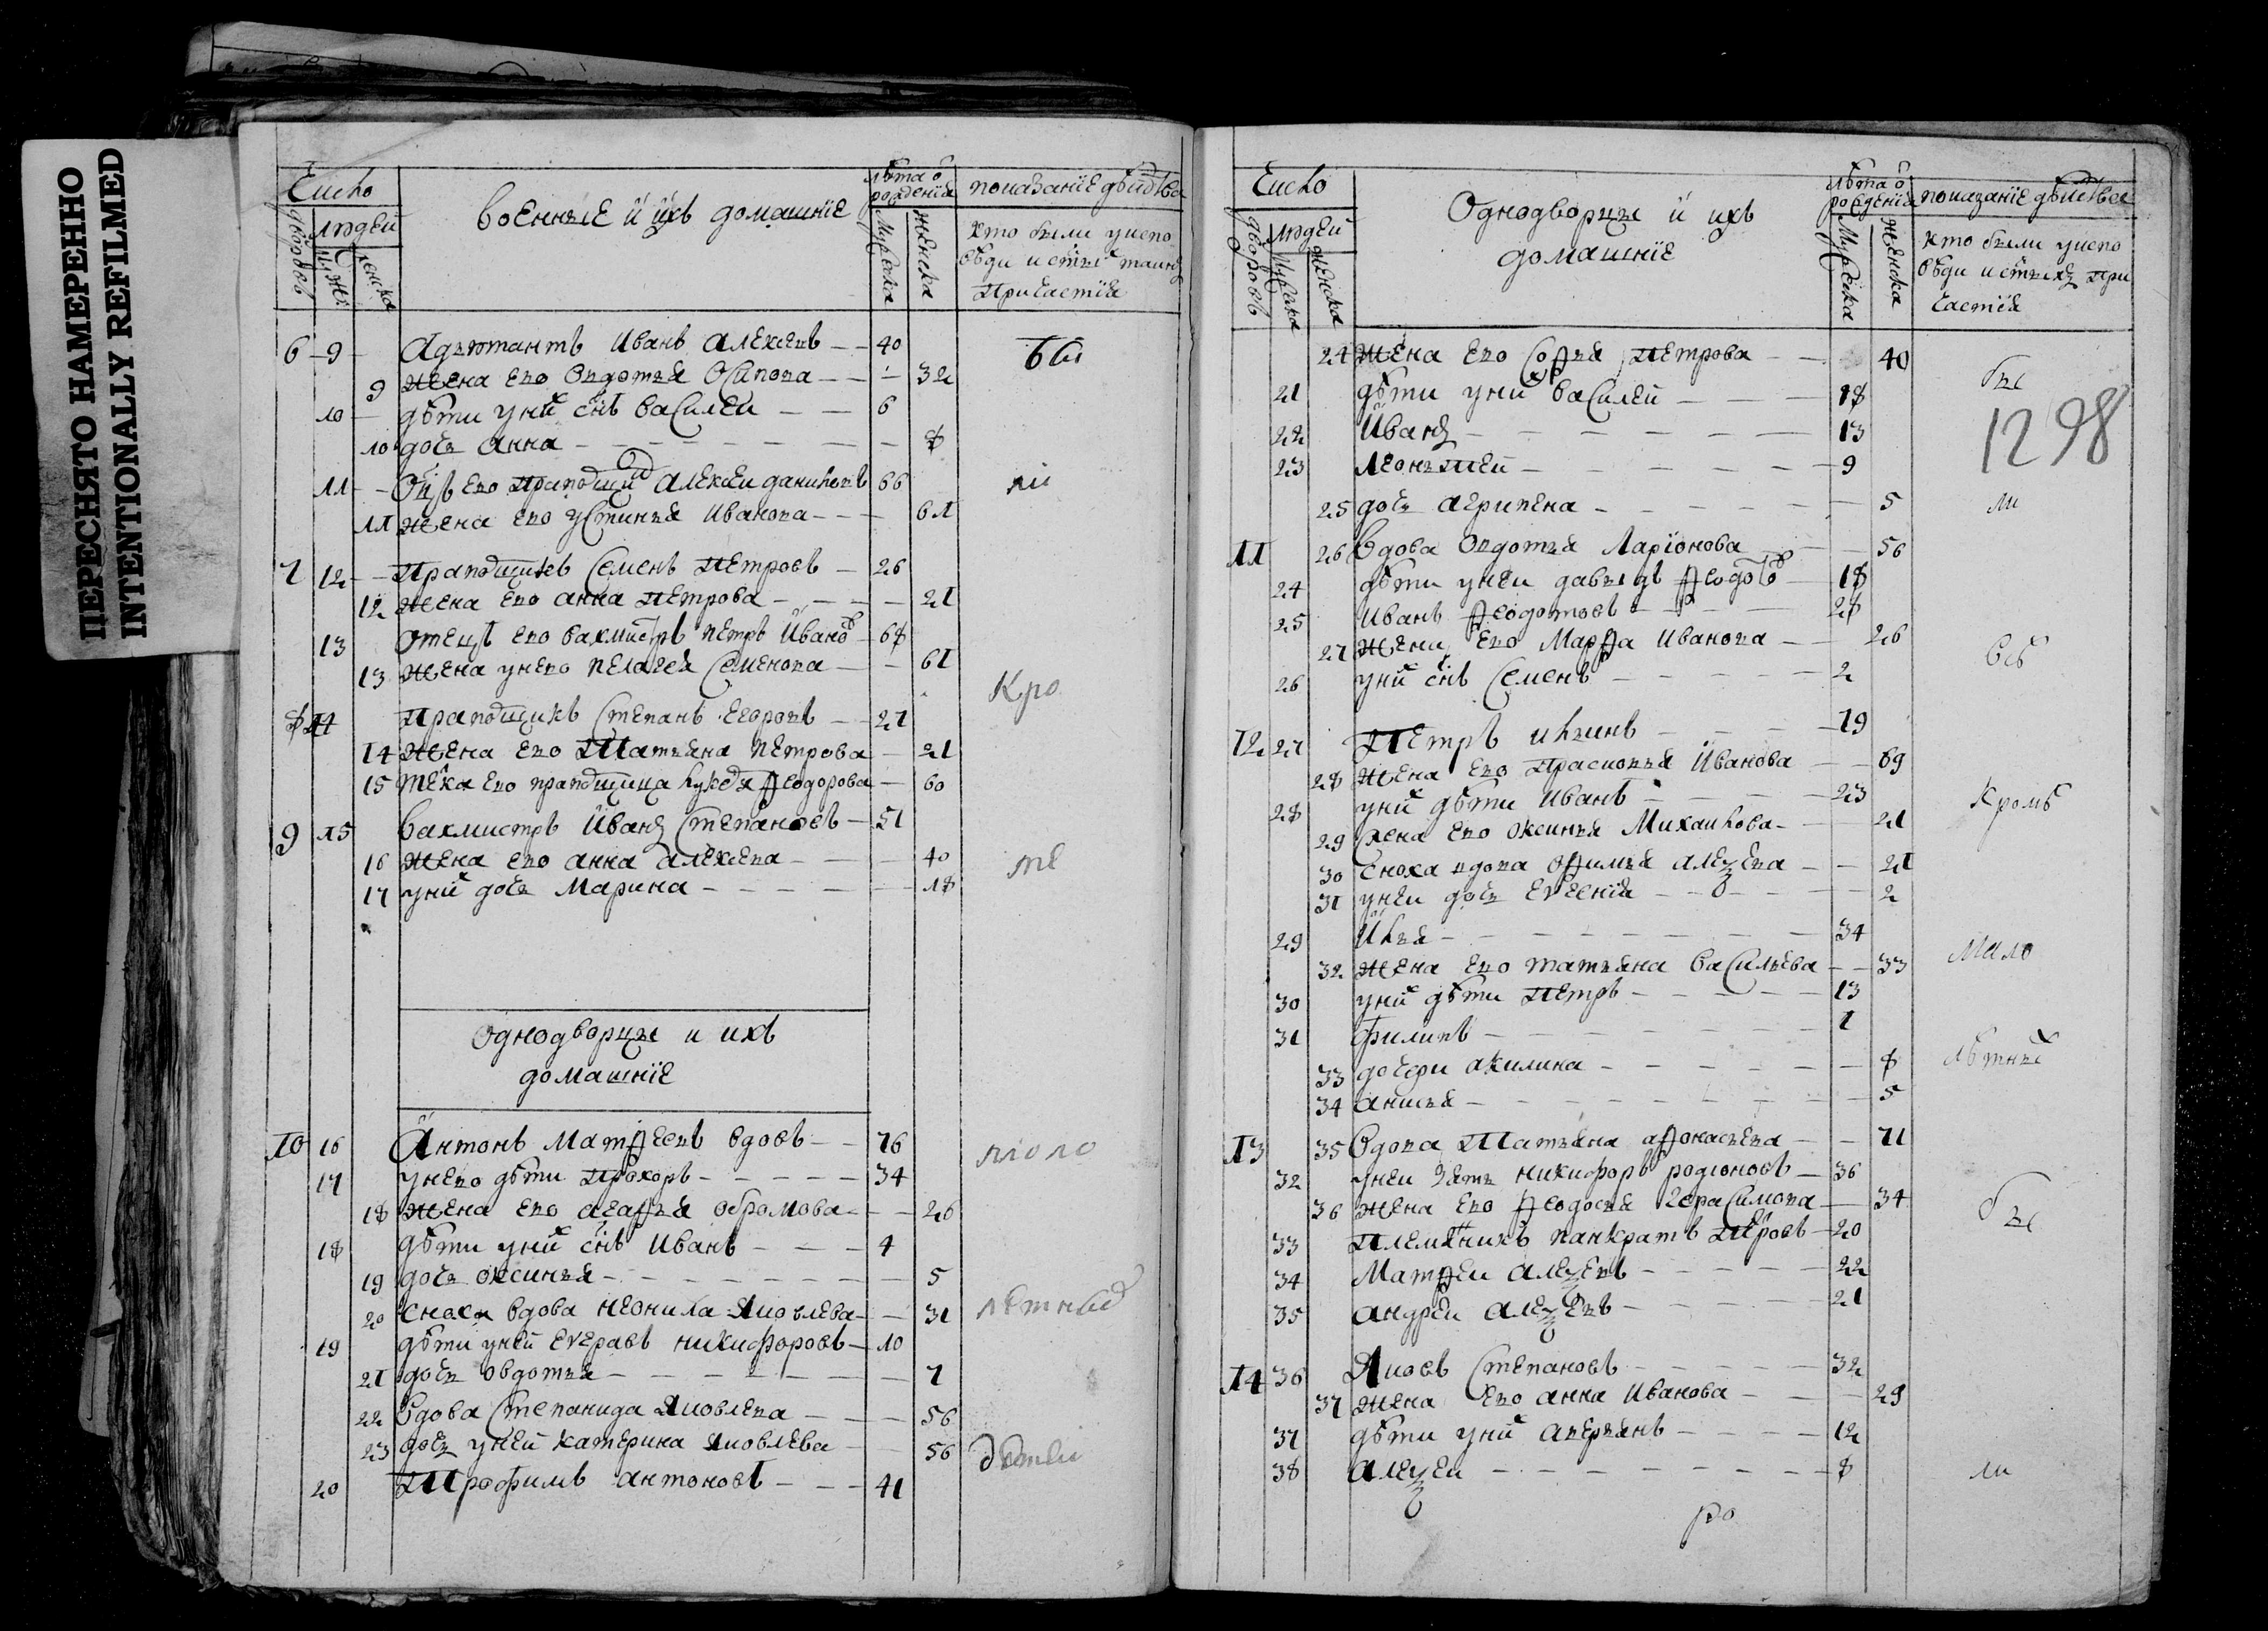 ПЕРЕСНЯТО НАМЕРЕННО
INTENTIONALLY REFILMED
Число
дворовъ
людей
мужс
женска
военные и ихъ домашнїе
лѣта ѿ рождения
Мужеска
женска
показанїе дѣйства
кто были у испо
вѣди и стыхъ таинъ
причастїя
6 9 Адъютантъ Иванъ Алексеевъ 40
9 жена ево Овдотья Осипова 32
10 дѣти у них снъ Василеи 6
10 дочь Анна 8
бы
11 Оцъ ево прапощик Алексеи Даниловъ 66
11 жена ево Устинья Иванова 61
ли
7 12 Прапощикъ Семенъ Петровъ 26
12 жена ево Анна Петрова 21
13 отецъ ево вахмистръ Петръ Ивановъ 68
13 жена у него Пелагея Семенова 61
Кро
8 14 Прапощикъ Степанъ Егоровъ 27
14 жена ево Татьяна Петрова 21
15 прапощица Феодорова 60
9 15 Вахмистръ Иванъ Степановъ 51
16 жена ево Анна Алексева 40
17 у них дочь Марина 18
ме
Однодворцы и ихъ
домашнїе
10 16 Антонъ Матфеевъ вдовъ 76
17 у него дѣти Прохоръ 34
18 жена ево Агафья Обромова 26
18 дѣти у них снъ Иванъ 4
19 дочь Оксинья 5
20 сноха вдова Неонила Яковлева 31
19 дѣти у ней Евграфъ Никифоровъ 10
21 дочь Овдотья 7
22 Вдова Степанида Яковлева 56
23 дочь у ней Катерина Яковлева 56
20 Трофимъ Антоновъ 41
лѣтных
дѣтеи
Число
дворовъ
людей
Мужска
женска
Однодворцы и ихъ
домашнїе
лѣта ѿ рождения
Мужеска
женска
показанїе дѣйства
кто были у испо
вѣди и стыхъ при
частїя
24 жена ево Софья Петрова 40
21 дѣти у них Василей 18
22 Иванъ 13
23 Леонътей 9
25 дочь Агрипена 5
бы
1298
ли
11 26 Вдова Овдотья Ларїонова 56
24 дѣти у ней Давыдъ Феодотовъ 18
25 Иванъ Феодотовъ 28
27 жена ево Марфа Иванова 26
26 у них снъ Семенъ 2
всѣ
12 27 Петръ Ильинъ 79
28 жена ево Прасковья Иванова 69
28 у них дѣти Иванъ 23
29 жена ево Оксинья Михаилова 21
30 сноха вдова Офимья Алексеева 21
31 у ней дочь Евгенїя 2
Кромѣ
29 Илья 34
32 жена ево Татьяна Васильева 33
30 у них дѣти Петръ 13
31 Филипъ 7
33 дочери Акилина 8
34 Анисья 5
мало
лѣтных
13 35 Вдова Татьяна Афонасьева 71
32 у ней зять Никифоръ Родионовъ 36
36 жена ево Феодосья Герасимова 34
33 племянникъ Панкратъ Петровъ 20
34 Матфеи Алексеевъ 22
35 Андрей Алексеевъ 21
бы
14 36 Яковъ Степановъ 32
37 жена ево Анна Иванова 29
37 дѣти у них Аверьянъ 12
38 Алексеи 8
ли
ро